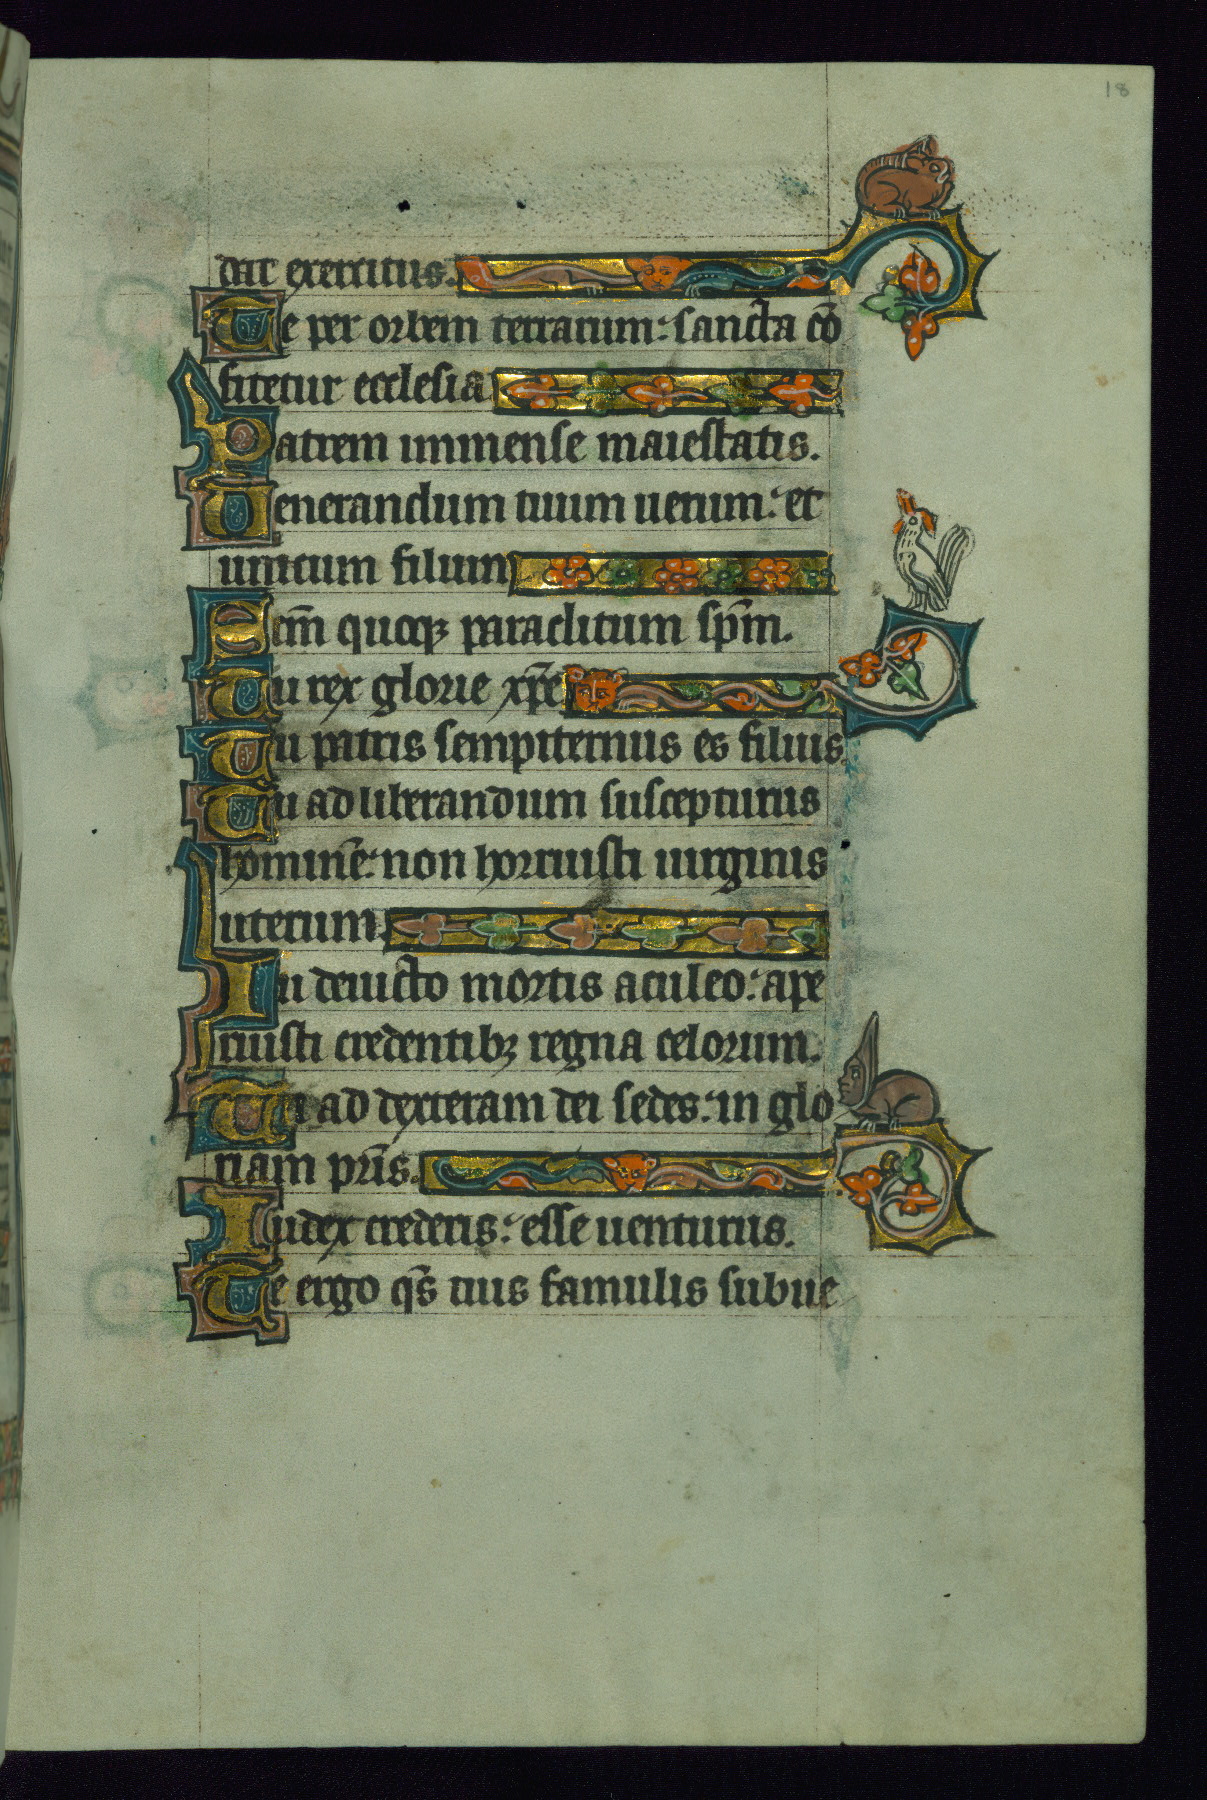 18
dat exercitus.
Te per orbem terrarum: sancta cō
fitetur ecclesia
Patrem immense maiestatis.
Uenerandum tuum uerum: et
unicum filium
Scm̄ quoqꝫ paraclitum sp̄m.
Tu rex glorie xp̄e
Tu patris sempiternus es filius.
Tu ad liberandum suscepturus
hominē: non horruisti uirginis
uterum.
Tu deuicto mortis aculeo: ape
ruisti credentibꝫ regna celorum.
Tu ad dexteram dei sedes: in glo
riam pr̄is.
Iudex crederis: esse uenturus.
Te ergo qs̄ tuis famulis subue